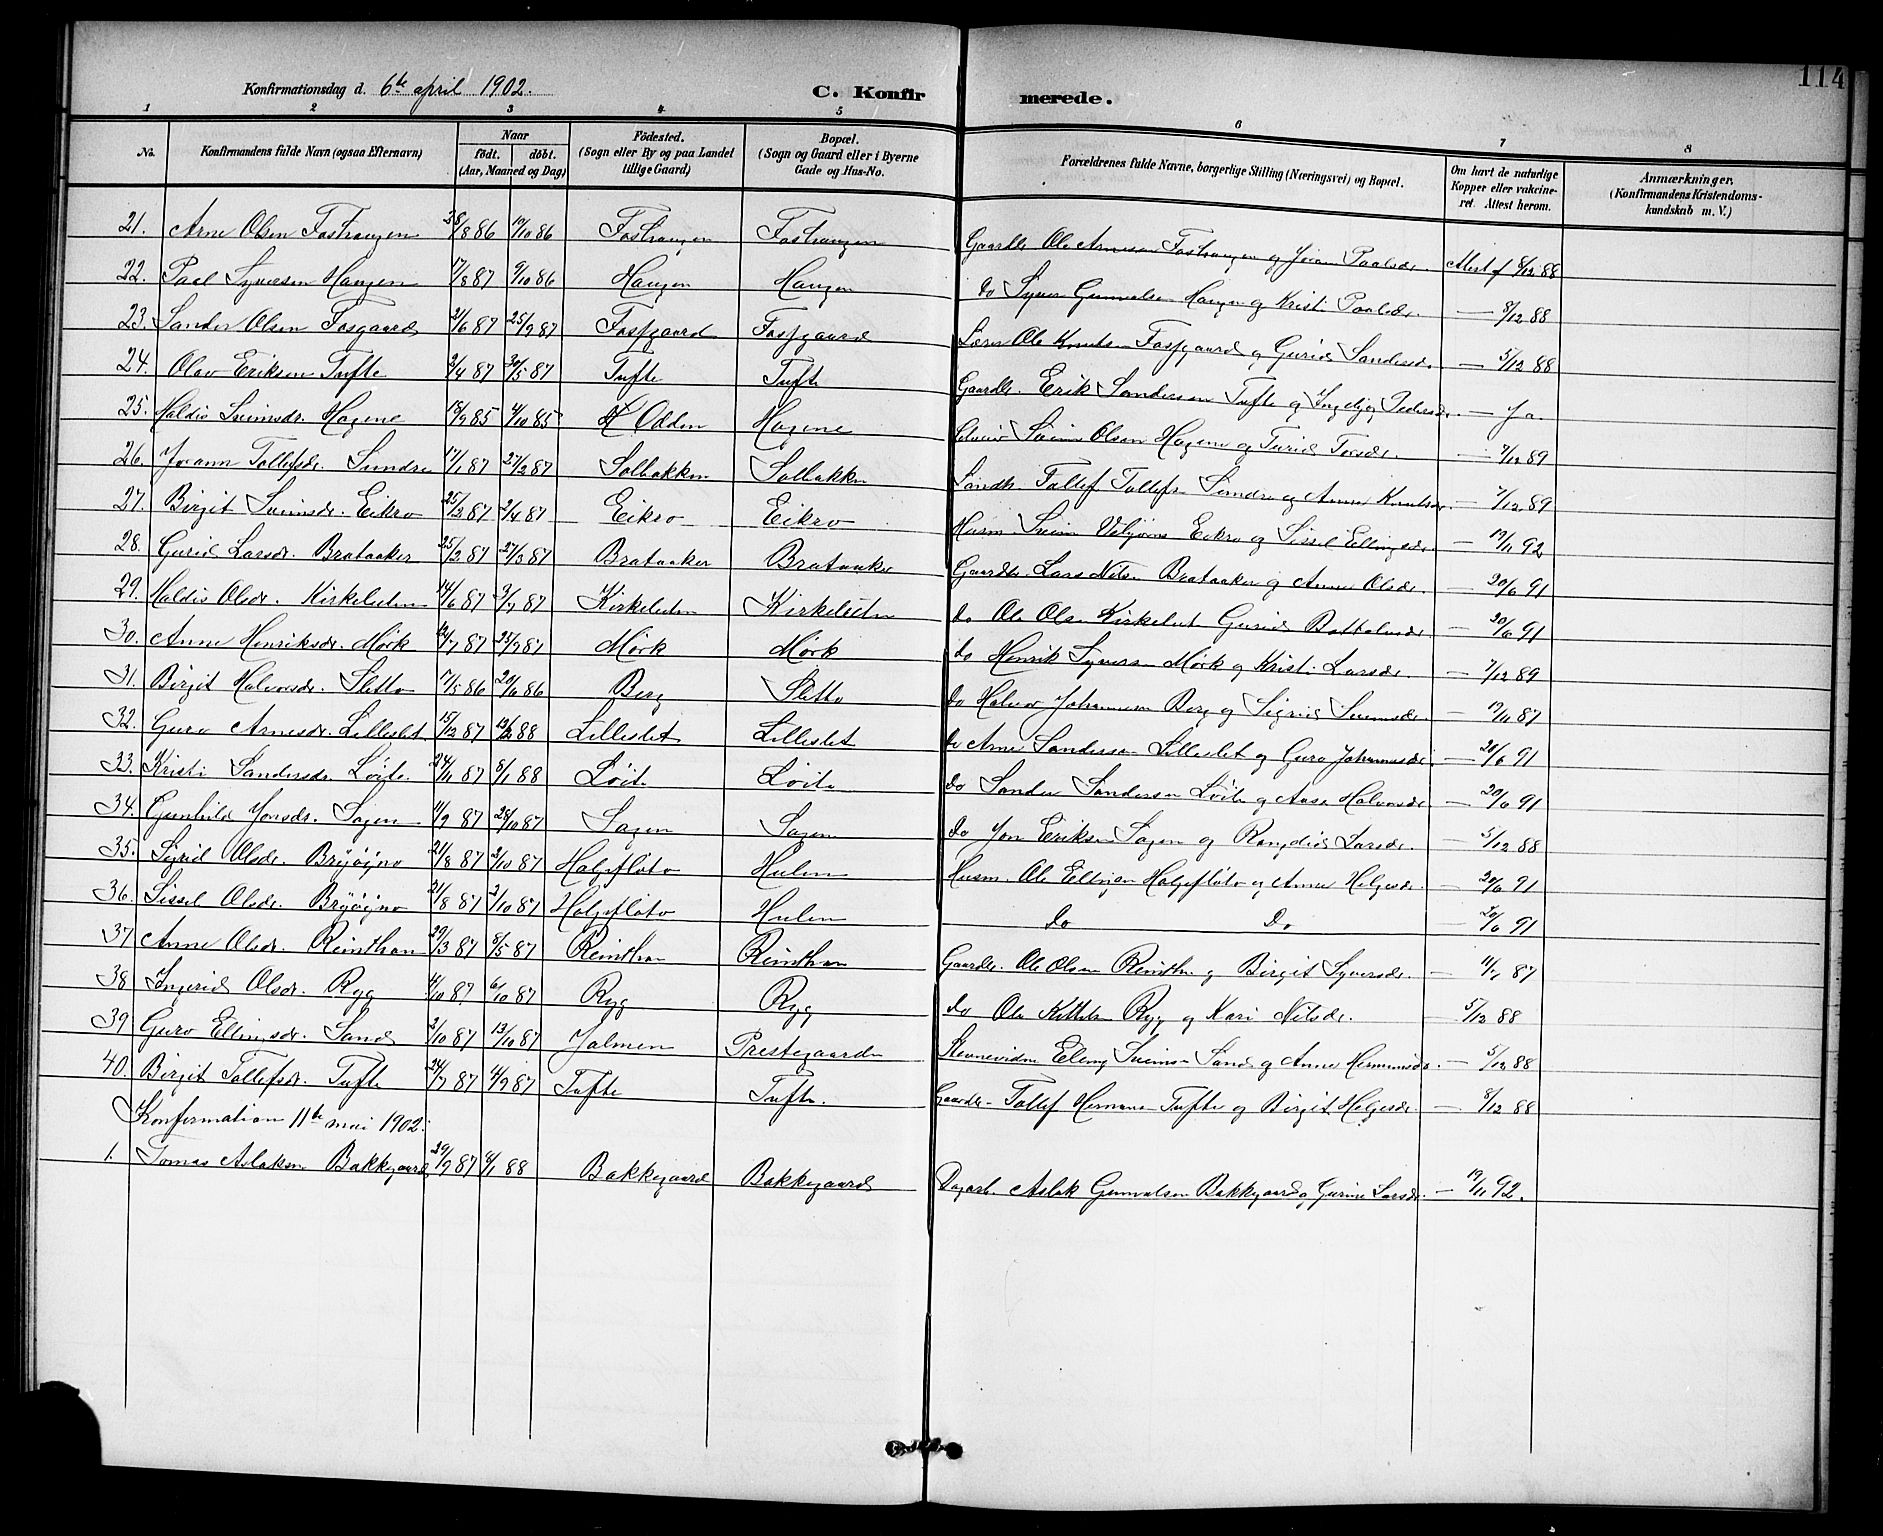 114
Konfirmationsdag d. 6te april 1902.
C. Konfirmerede.
1 2 3 4 5 6 7 8
No. Konfirmandens fulde Navn (ogsaa Efternavn) Naar født. døbt. (Aar, Maaned og Dag) Fødested. (Sogn eller By og paa Landet tillige Gaard) Bopæl. (Sogn og Gaard eller i Byerne Gade og Hus-No. Forældrenes fulde Navne, borgerlige Stilling (Næringsvei) og Bopæl. Om havt de naturlige Kopper eller vakcineret. Attest herom. Anmærkninger. (Konfirmandens Kristendomskundskab m. V.)
21. Arne Olsen 28/8 86 17/10 86 Gaardbr. Ole Arnesen Paalsdr. Attest af 8/12 88
22. Paal Syversen Haugen 17/8 87 9/10 86 Haugen Haugen do Syver Gunnulsen Haugen og Kristi Paalsdr. — 8/12 88
23. Sander Olsen Fosgaard 21/6 87 25/9 87 Fossgaard Fossgaard Lærer Ole Knutsen Fossgaard og Gurid Sandersd. — 5/12 88
24. Olav Eriksen Tufte 2/4 87 30/5 87 Tufte Tufte Gaardbr. Erik Sandersen Tufte og Ingebjør Pedersdr. — Ja
25. Haldis Sveinsdr. Hagene 18/9 85 4/10 85 Odden Hagene Svein Olsen Hagene og Turid — 7/12 89
26. Jorann Tollefsdr. Sundre 17/1 87 27/2 87 Solbakken Solbakken Landh. Tollef Tollefs. Sundre og Anne Knutsdr. — 7/12 89
27. Birgit Sveinsdr. Eikro 25/2 87 2/4 87 Eikro Eikro Husm. Svein Eikro og Sissel Ellingsdr. — 17/11 92
28. Gurid Larsdr. Brataaker 25/2 87 27/3 87 Brataaker Brataaker Gaardbr. Lars Nilsen Brataaker og Anne Olsdr. — 20/6 91
29. Haldis Olsdr. Kirkeleiten 14/6 87 3/7 87 Kirkeleiten Kirkeleiten do Ole Olsen Kirkeleit Gurid Bottolvsdr. — 20/6 91
30. Anne Henriksdr. Mørk 12/7 87 25/9 87 Mørk Mørk do Henrik Syversen Mørk og Kristi Larsdr. — 7/12 89
31. Birgit Halvorsdr. Sletto 17/5 86 20/6 86 Berg Sletto do Halvor Johannesen Berg og Sigrid Sveinsdr. — 17/11 87
32. Guro Arnesdr. Lilleslet 15/12 87 12/2 88 Lilleslet Lilleslet do Arne Sandersen Lilleslet og Guro Johannesdr. — 20/6 91
33. Kristi Sandersdr. Løite 24/11 87 8/1 88 Løite Løite do Sander Sandersen Løite og Aase Halvorsdr. — 20/6 91
34. Gunhild Jonsdr. Sagen 11/9 87 28/10 87 Sagen Sagen do Jon Eriksen Sagen og Rangdid Larsdr. — 5/12 88
35. Sigrid Olsdr. Brøygno 21/8 87 2/10 87 Holgefløto Hulen Husm. Ole Ellingsen Holgefløto og Anne Helgesdr. — 20/6 91
36. Sissel Olsdr. Brøygno 21/8 87 2/10 87 Holgefløto Hulen do do — 20/6 91
37 Anne Olsdr. Reinthon 29/3 87 8/5 87 Reinthon Reinthon Gaardbr. Ole Olsen Reinthon og Birgit Syversdr. — 11/7 87
38 Ingerid Olsdr. Ryg 4/10 87. 6/10 87 Ryg Ryg do Ole Kittelsen Ryg og Kari Nilsdr. — 5/12 88
39 Guro Ellingsdr. Sand 2/10 87 13/10 87 Jalmen Prestegaarden Elling Sveinsen Sand og Anne — 5/12 88
40. Birgit Tollefsdr. Tufte 24/7 87 4/9 87 Tufte Tufte. Gaardbr. Tollef Hermansen Tufte og Birgit Helgesdr. — 8/12 88
Konfirmation 11te mai 1902.
1. Tomas Aslaksen Bakkegaard 29/9 87 6/1 88 Bakkegaard Bakkegaard Dagarb. Aslak Gunnulsen Bakkegaard og Gurine Larsdr. — 17/11 92.